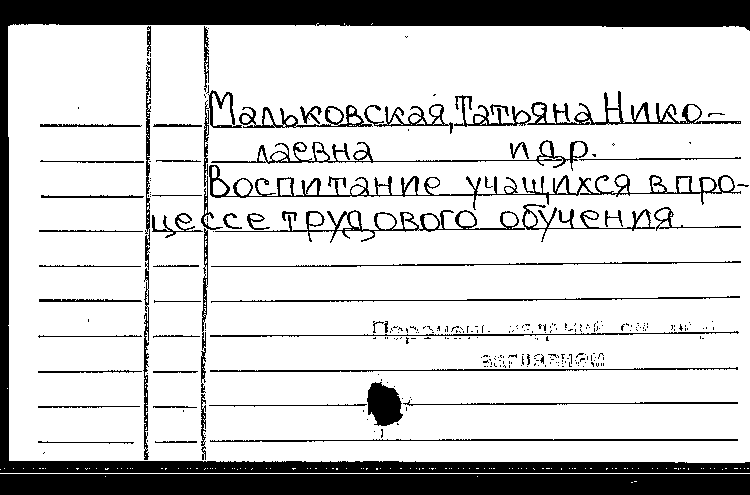 Мальковская, Татьяна Нико-
лаевна и др.
Воспитание учащихся в про-
цессе трудового обучения.
Перечень изданий см. под
заглавием